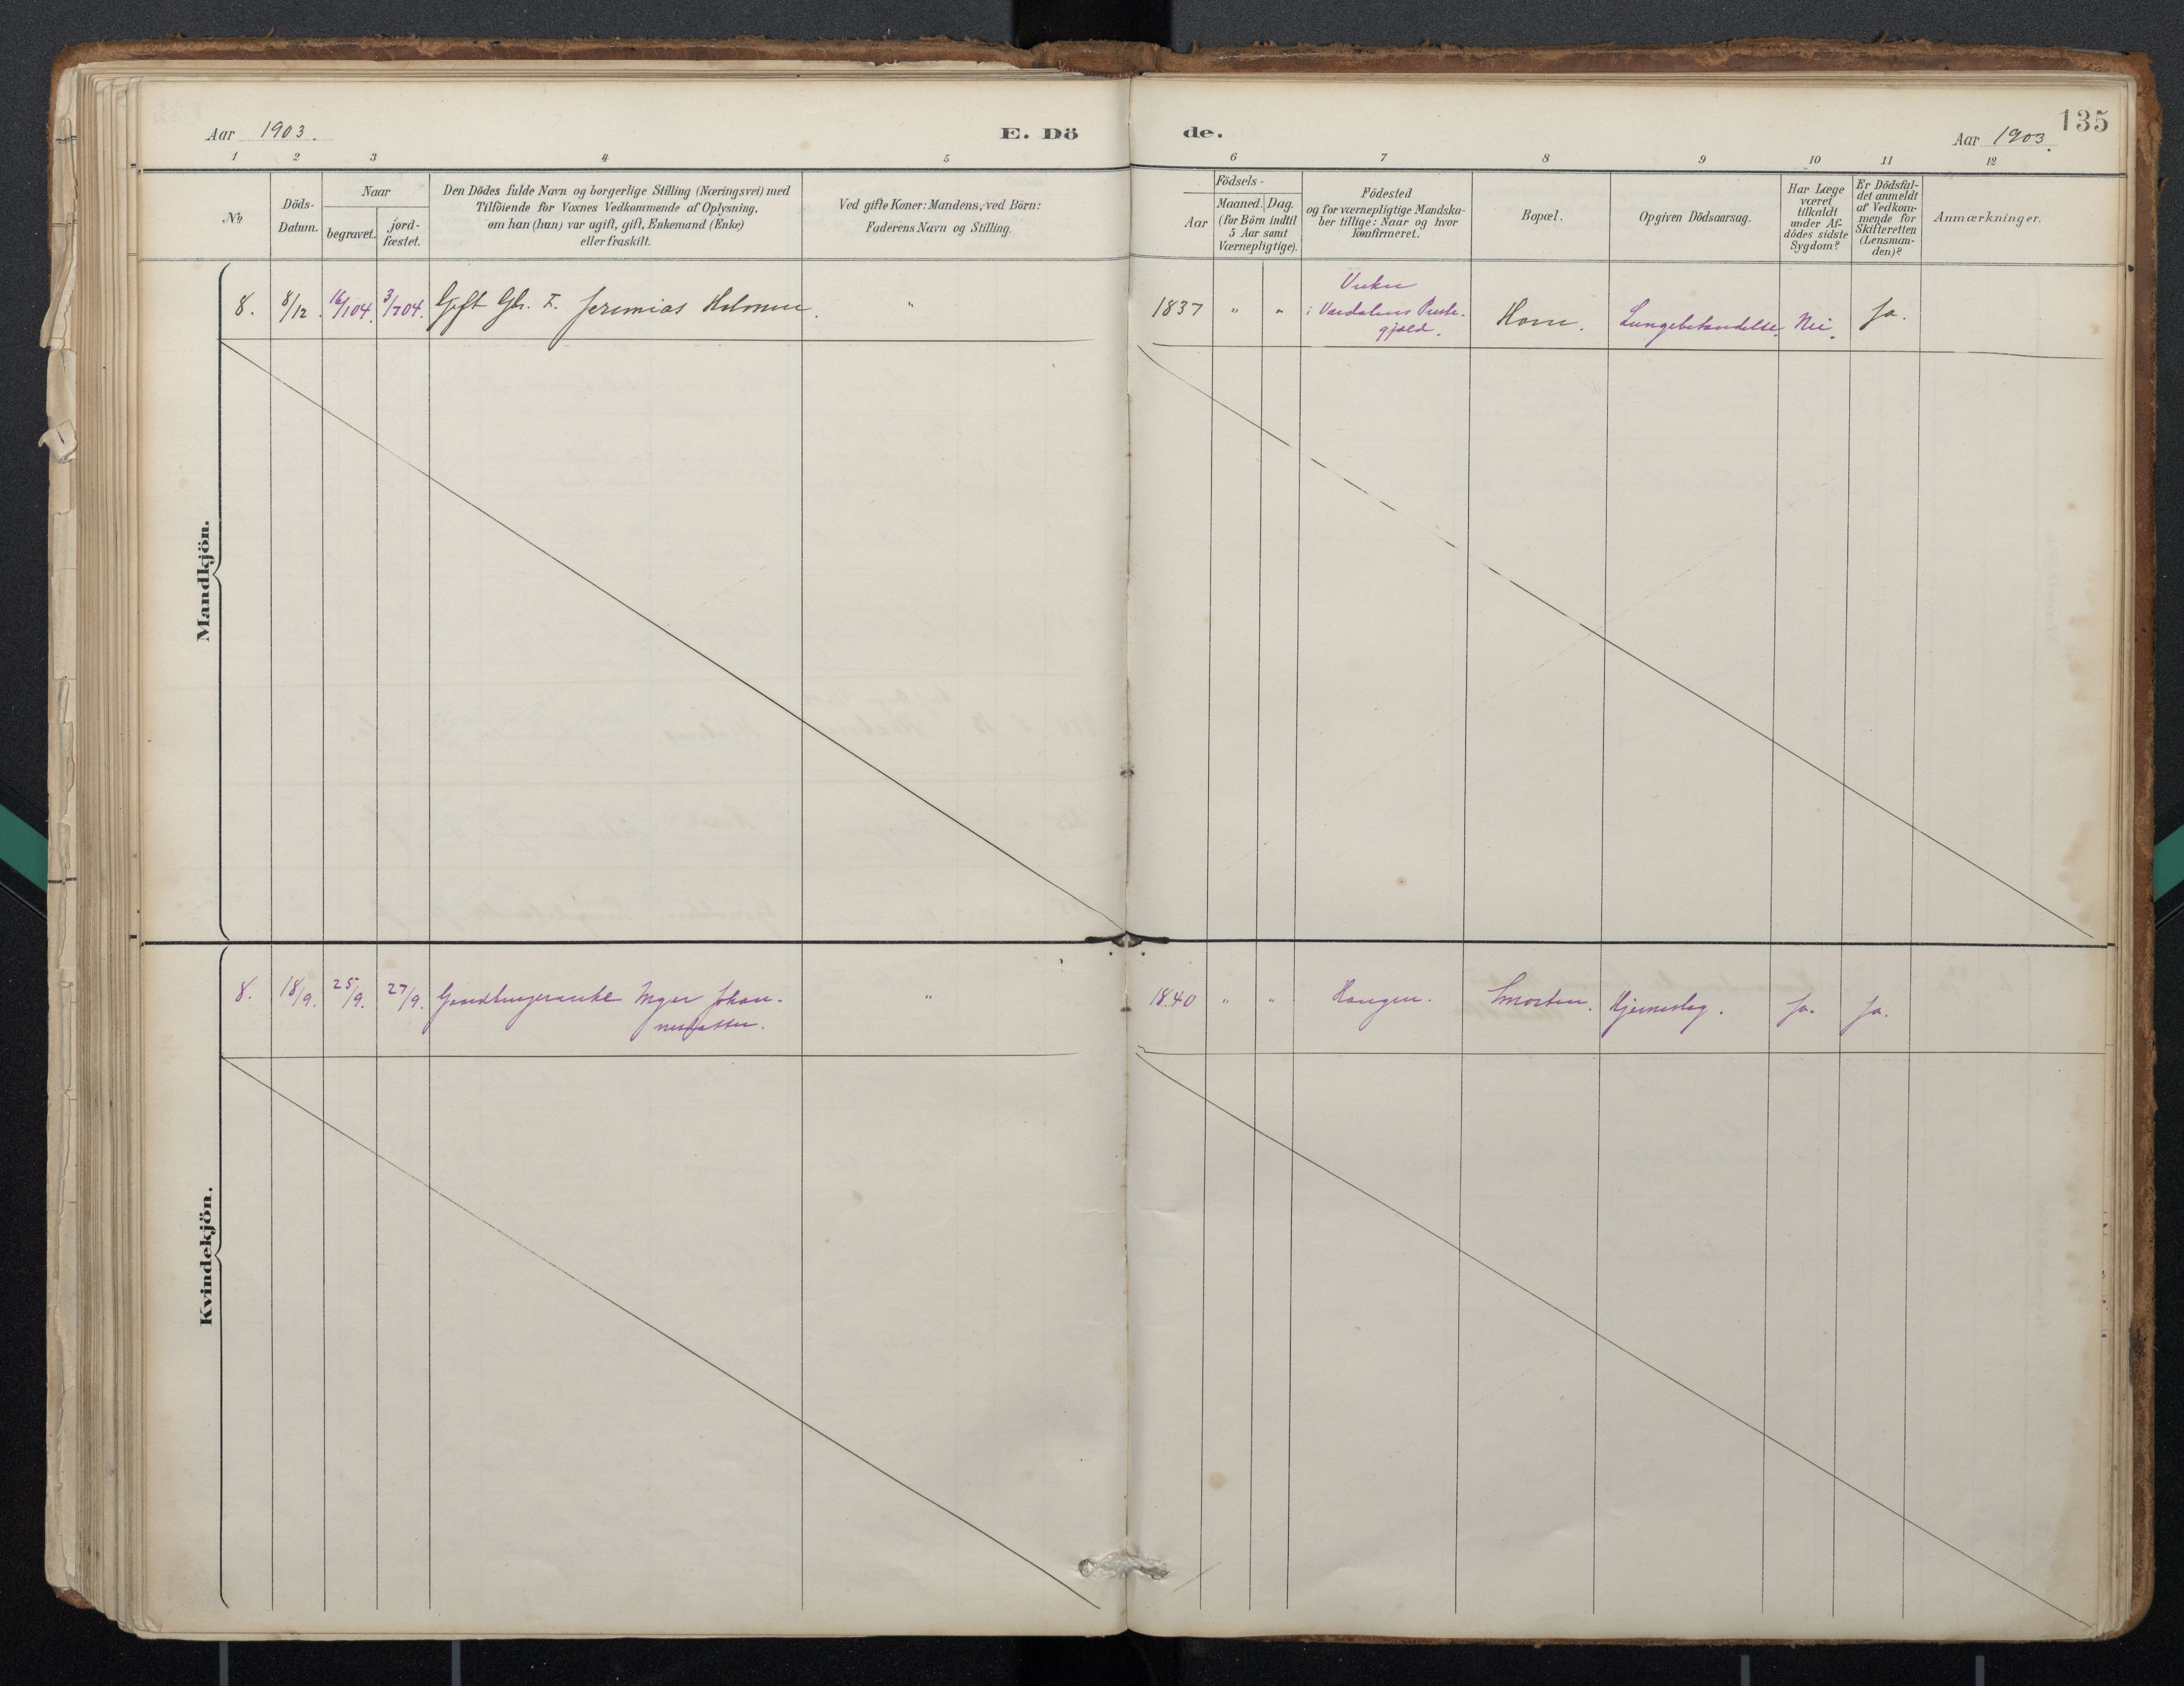 135
Aar 1903.
E. Dö
de.
Aar 1903.
1 2 3 4 5 6 7 8 9 10 11 12
No
Döds-
Datum.
Naar
begravet.
jord-
fæstet.
Den Dödes fulde Navn og borgerlige Stilling (Næringsvei) med
Tilföiende for Voxnes Vedkommende af Oplysning,
om han (hun) var ugift, gift, Enkemand (Enke)
eller fraskilt.
Ved gifte Koner: Mandens, ved Börn:
Faderens Navn og Stilling.
Födsels-
Aar
Maaned. Dag.
(for Börn indtil
5 Aar samt
Værnepligtige).
Födested
og for værnepligtige Mandska-
ber tillige: Naar og hvor
Konfirmeret.
Bopæl.
Opgiven Dödsaarsag.
Har Læge
været
tilkaldt
under Af-
dödes sidste
Sygdom?
Er Dödsfal-
det anmeldt
af Vedkom-
mende for
Skifteretten
(Lensman-
den)?
Anmærkninger.
Mandkjön.
8. 8/12. 16/1 04. 3/7 04. Gift Gbr. F. Jeremias Holmen. " 1837 " "
i Værdalens Præste-
gjæld.
Horn. Lungebetændelse. Nei. Ja.
Kvindekjön.
8. 18/9. 25/9. 27/9. Gaardbrugerenke Inger Johan-
nesdatter.
" 1840 " " Haugen. Smorten. Hjerneslag. Ja. Ja.